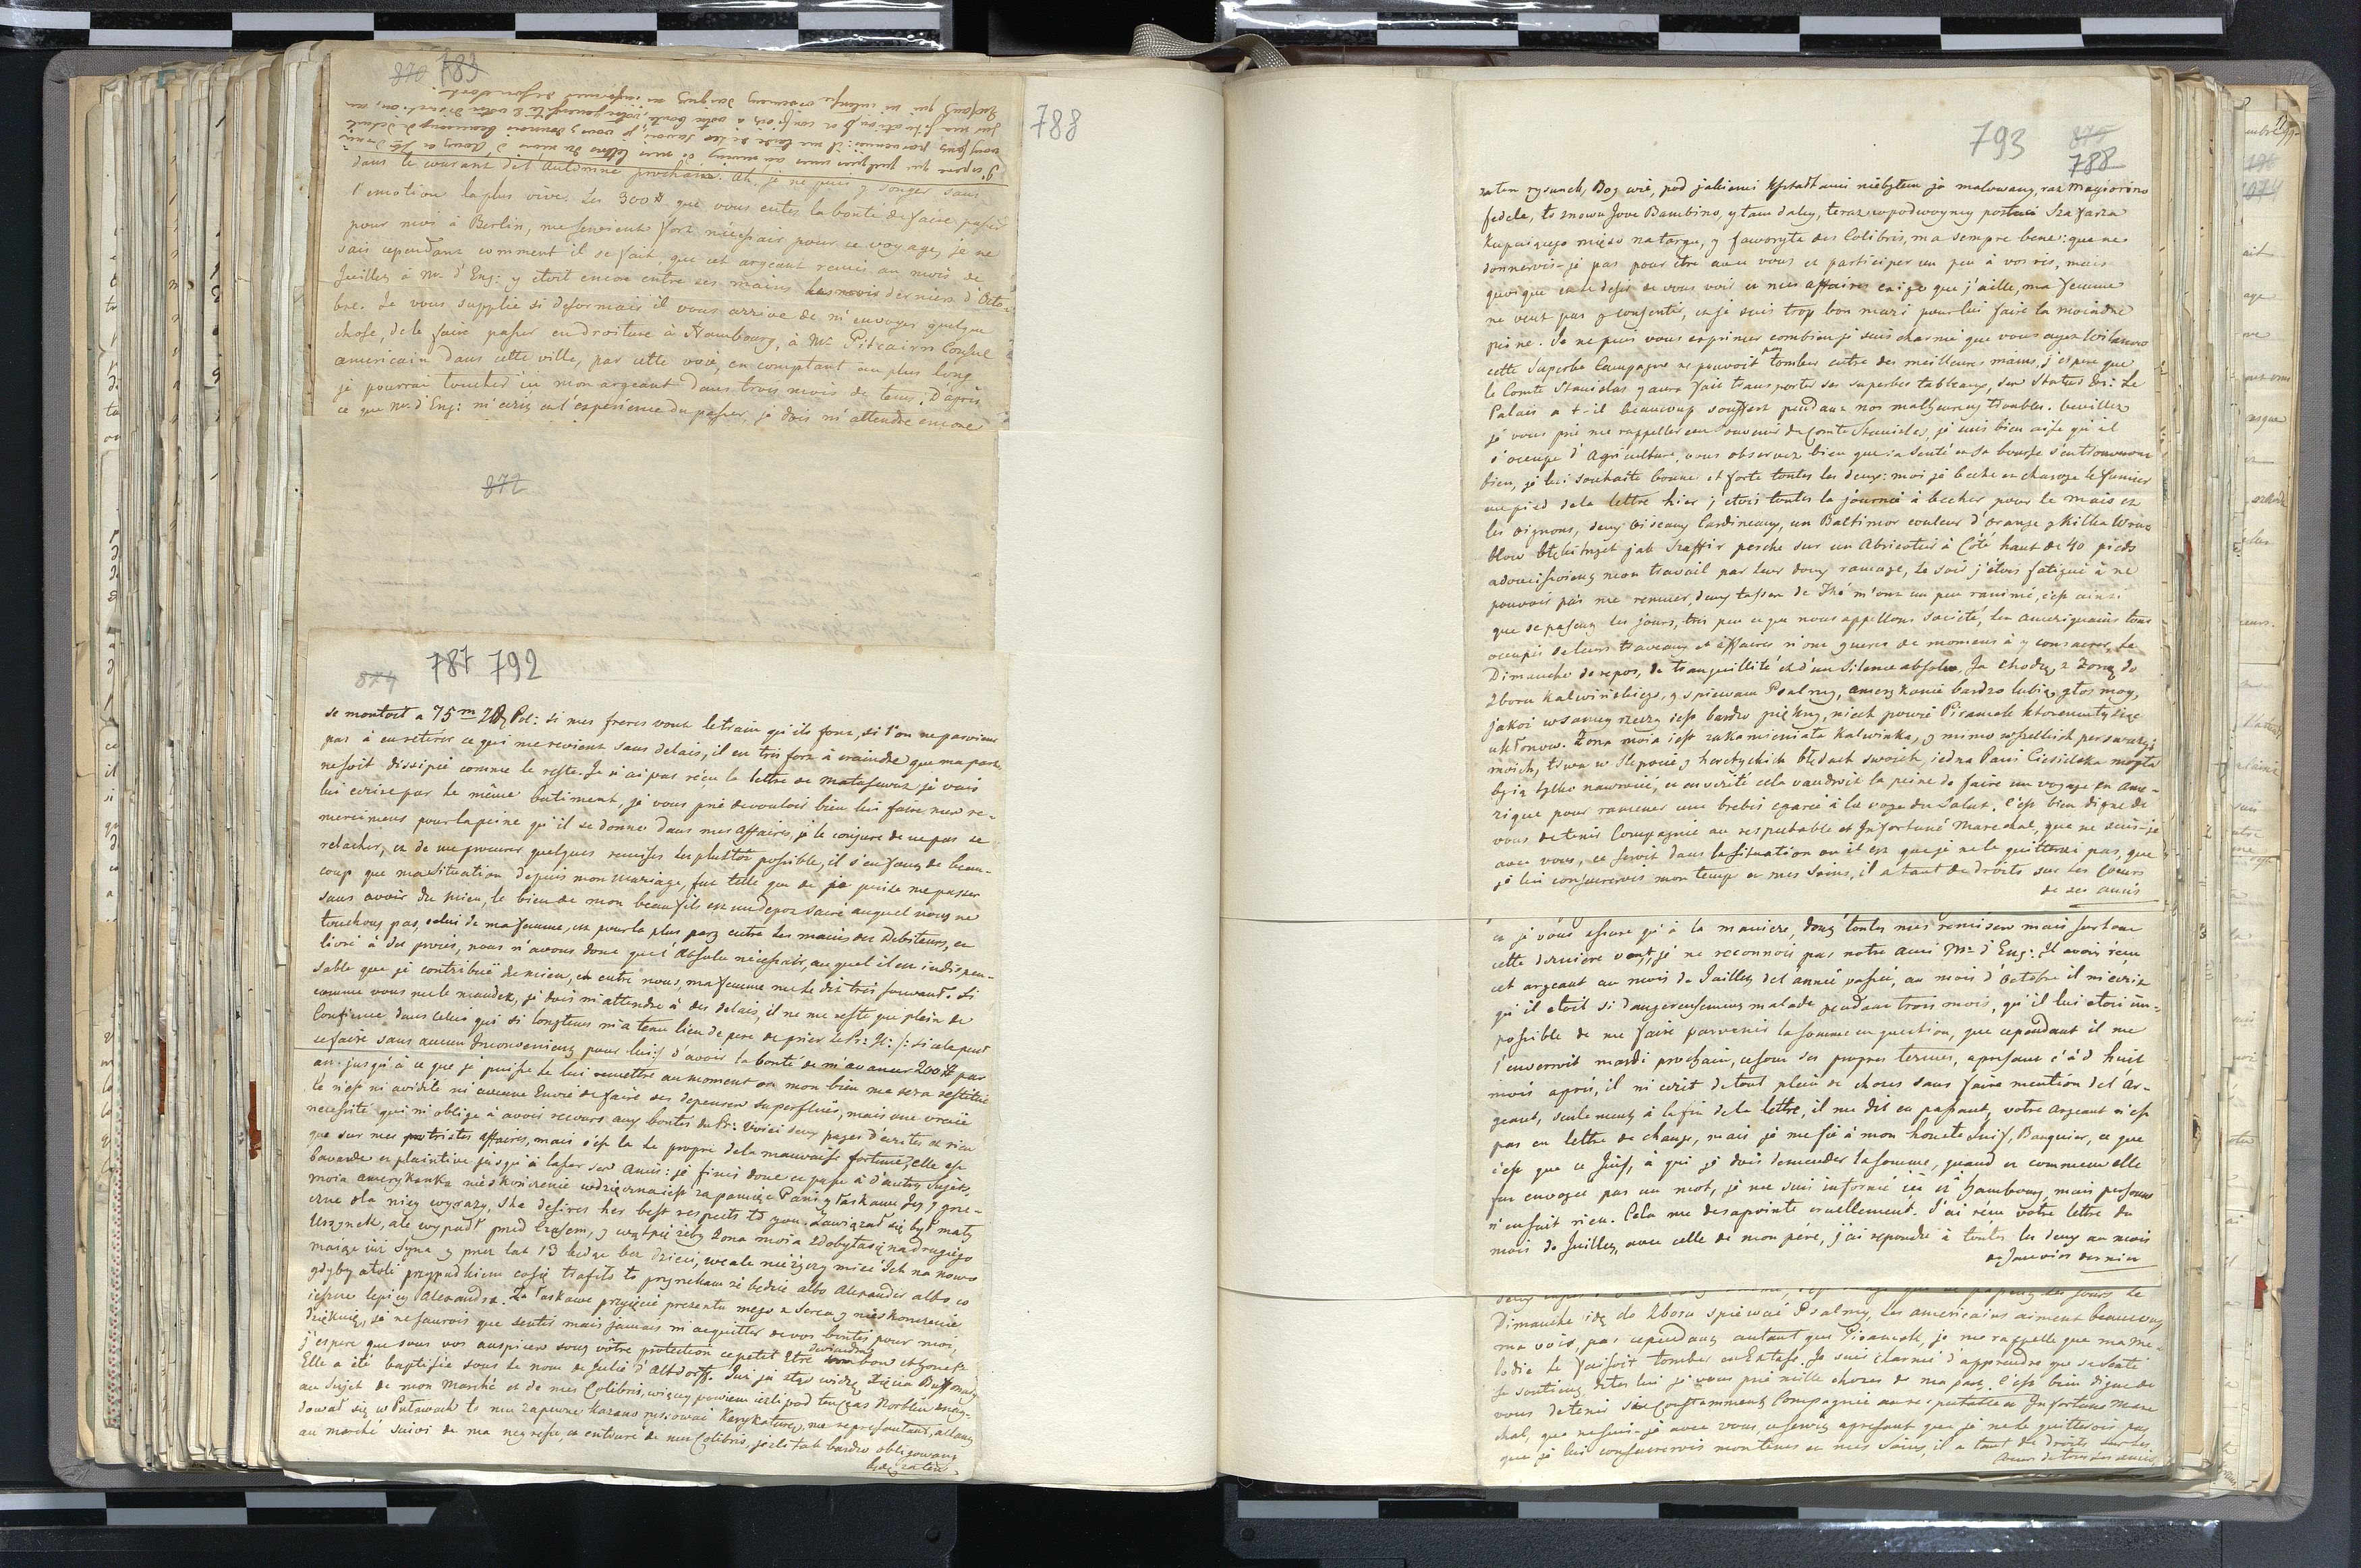 870 783
J'espère que
dans le courant del'Automne prochain. Ah, je ne puis y songer sans
l'emotion la plus vive. Les 300 # que vous eutes la bonté de faire passer
pour moi à Berlin, me seroient fort necessair pour ce voyage, je ne
sais cependant comment il se fait, que cet argeant remis au mois de
Juillet à Mr. d'Eng: y etoit encore entre ses mains les mois dernier d'Octo-
bre. Je vous supplie si desormais il vous arrive de m'envoyer quelque
chose, de le faire passer en droiture à Hambourg, à Mr Pitcairn Consul
americain dans cette ville, par cette voie, en comptant au plus long
je pourrai toucher ici mon argeant dans trois mois de tems. D'après
ce que Mr. d'Eng: m'ecrit et l'experience du passé, je dois m'attendre encore
872
788
874 787 792
se montoit a 75m Zł Pol: si mes freres vont le train qu'ils font, si l'on ne parvient
pas à en retirer ce qui me revient sans delais, il est très fort à craindre que ma part
ne soit dissipée comme le reste. Je n'ai pas reçu la lettre de Mataszewicz je vais
lui ecrire par le même batiment, je vous prie de vouloir bien lui faire mes re-
mercimens pour la peine qu'il se donne dans mes affaires, je le conjure de ne pas se
relacher, et de me procurer quelques remises les plustôt possible, il s'en faut de beau-
coup que ma situation depuis mon mariage, fut telle que de je puisse me passer
sans avoir du mien, le bien de mon beau fils est un depot sacré auquel nous ne
touchons pas, celui de ma femme, est pour la plus part entre les mains des Debiteurs, et
livré à des procès, nous n'avons donc que l'absolu nécessair, auquel il est indispen-
sable que je contribuë du mien, et entre nous, ma femme me le dit très souvent. Si
comme vous me le mandez, je dois m'attendre à des delais, il ne me reste que plein de
Confience dans Celui qui si longtems m'a tenu lieu de pere de prier le Pr: Gl: /: si cela peut
ce faire sans aucun Inconvenient pour lui :/ d'avoir la bonté de m'avancer 200 # par
an: jusqu'à ce que je puisse le lui remettre au moment où mon bien me sera restitué
Ce n'est ni avidité ni aucune Envie de faire des depenses superfluës, mais une vraië
necessité qui m'oblige à avoir recours aux bontés du Pr: Voici deux pages d'ecrites et rien
que sur mes tristes affaires, mais c'est la le propre de la mauvaise fortune, elle est
bavarde et plaintive jusqu'à lasser ses amis: je finis donc et passe à d'autres sujets.
moia amerykanka nieskończenie wdzięczna iest za pamięć Pani y łaskawe Jey y grze-
czne dla niey wyrazy, She desires her best respects to you. Zawiązał się był mały
Uszynek, ale wypadł przed Czasem, y wątpię żeby Zona moia zdobyła się na drugiego
maiąc iuż Syna y przez lat 13 będąc bez dzieci, wcale nieżyczy mieć Ich na nowo
gdyby atoli przypadkiem cosię trafiło to przyrzekam że będzie albo Alexander albo co
ieszcze lepiey Alexandra. Za łaskawe przyięcie prezentu mego z Serca y nieskończenie
dziękuię, je ne saurois que sentir mais jamais m'acquitter de vos bontés pour moi,
j'espere que sous vos auspices sous vôtre protection ce petit Etre deviendra bon et honete
Elle a été baptisée sous le nom de Julie d'Altdorff. Już ja stąd widzę Zięcia Buffonady
au sujet de mon marché et de mes Colibris, więcey powiem ieżli pod ten Czas Norblin znay-
dował się w Puławach to mu zapewne kazano rysować Karykaturę, me representant, allant
au marché suivi de ma negresse, et entouré de mes Colibris, jeżeli tak bardzo obligowany
będę za ten
793 875
788
za ten rysunek, Bog wie, pod jakiemi Kształtami niebyłem ja malowany, raz Magiorino
fedele, to znowu Jove Bambino, y tam daley, teraz w podwoyney postaci Szafarza
Kupuiącego mięso na targu, y faworyta des Colibris, ma sempre bene: que ne
donnerois-je pas pour être avec vous et participer un peu à vos ris, mais
quoique et le desir de vous voir et mes affaires exige que j'aille, ma femme
ne veut pas y consentir, et je suis trop bon mari pour lui faire la moindre
peine. Je ne puis vous exprimer combien je suis charmé que vous ayez Wilanow
cette superbe Campagne ne pouvoit pas tomber entre des meilleures mains, j'espere que
le Comte Stanislas y aura fait transporter ses superbes tableaux, ses Statues &c: Le
Palais a t-il beaucoup souffert pendant nos malheureux troubles. veuillez
je vous prie me rappeller au souvenir du Comte Stanislas, je suis bien aise qu'il
s'occupe d'Agriculture, vous observez bien que sa Santé et sa bourse s'en trouveront
bien, je lui souhaite bonne et forte toutes les deux: moi je beche et charoye le fumier
au pied de la lettre hier j'etois toutes la journée à becher pour le mais et
les oignons, deux oiseaux Cardineaux, un Baltimor couleur d'orange y kilka
blow błękitnych jak Szaffir perche sur un Abricotier à Côté haut de 40 pieds
adoucissoient mon travail par leur doux ramage, le soir j'étois fatigué à ne
pouvoir pas me remuer, deux tasses de Thé m'ont un peu ranimé, c'est ainsi
que se passent les jours, très peu ce que nous appellons societé, les ameriquains tous
occupés de leurs travaux et affaires n'ont gueres de momens à y consacrer, le
Dimanche de repos, de tranquillité et d'un silence absolu. Ja chodzę z Zoną do
Zboru Kalwińskiego, y spiewam Psalmy, amerykanie bardzo lubią głos moy,
jakoż w samey rzeczy iest bardzo piękny, niech powie Pisarnek ktoremu tysiąc
ukłonow. Zona moia iest zakamieniała Kalwinka, y mimo wszelkich perswazyi
moich, trwa w slepocie y heretyckich błędach swoich, jedna Pani Ciesielska mogła
by ią tylko nawrocić, et en verité cela vaudroit la peine de faire un voyage en Ame-
rique pour ramener une brebis egarée à la voye du Salut. C'est bien digne de
vous de tenir Compagnie au respectable et Infortuné Marechal, que ne suis-je
avec vous, ce seroit dans la situation ou il est que je ne le quitterai pas, que
je lui consacrerois mon temps et mes soins, il a tant de droits sur les Coeurs
de ses amis
et je vous assure qu'à la maniere, dont toutes mes remises mais surtout
cette derniere vont, je ne reconnois pas notre ami Mr. d'Eng: Il avoit reçu
cet argeant au mois de Juillet del'année passée, au mois d'Octobre il m'ecrit
qu'il etoit si dangereusement malade pendant trois mois, qu'il lui etoit im-
possible de me faire parvenir la somme en question, que cependant il me
l'enverroit mardi prochain, ce sont ses propres termes, apresent c'à d huit
mois après, il m'ecrit de tout plein de choses sans faire mention del'Ar-
geant, seulement à la fin de la lettre, il me dit en passant, votre argeant n'est
pas en lettre de change, mais je me fie à mon honete Juif, Banquier, ce que
c'est que ce Juif, à qui je dois demander la somme, quand et comment elle
fut envoyée pas un mot, je me suis informé ici et à Hambourg, mais personne
n'en sait rien. Cela me desapointe cruellement. J'ai reçu votre lettre du
mois de Juillet, avec celle de mon père, j'ai repondu à toutes les deux au mois
de Janvier dernier
Dimanche idę do Zboru spiewać Psalmy, les americains aiment beaucoup
ma voix, pas cependant autant que Pisarnek, je me rappelle que ma me-
lodie le faisoit tomber en Extase. Je suis charmé d'apprendre que sa Santé
se soutient, dites lui je vous prie mille choses de ma part. C'est bien digne de
vous de tenir si constamment Compagnie au respectable et Infortuné Mare
chal, que ne suis-je avec vous, ce seroit apresent que je ne le quitterois pas
que je lui consacrerois mon tems et mes soins, il a tant de droits sur les
Coeurs de tous ses amis